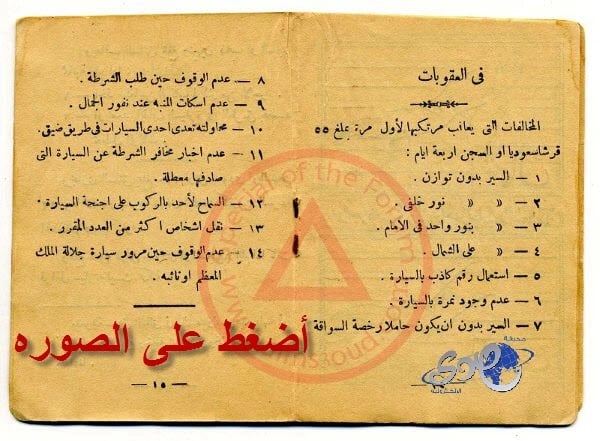 في العقوبات
المخالفات التي يعاقب مرتكبها لأول مرة بمبلغ ٥٥
قرشا سعوديا او السجن اربعة ايام :
١ — السير بدون توازن .
٢ — » » نور خلفي .
٣ — » بنور واحد في الامام .
٤ — » على الشمال .
٥ — استعمال رقم كاذب بالسيارة .
٦ — عدم وجود نمرة بالسيارة .
٧ — السير بدون ان يكون حاملا رخصة السواقة
٨ — عدم الوقوف حين طلب الشرطة .
٩ — عدم اسكات المنبه عند نفور الجمال .
١٠ — محاولته تعدى احدى السيارات في طريق ضيق .
١١ — عدم اخبار مخافر الشرطة عن السيارة التى
صادفها معطلة .
١٢ — السماح لأحد بالركوب على اجنحة السيارة .
١٣ — نقل اشخاص اكثر من العدد المقرر .
١٤ — عدم الوقوف حين مرور سيارة جلالة الملك
المعظم او نائبه .
— ١٥ —
أضغط على الصوره
Special of the Forum
صحيفة
الالكترونية